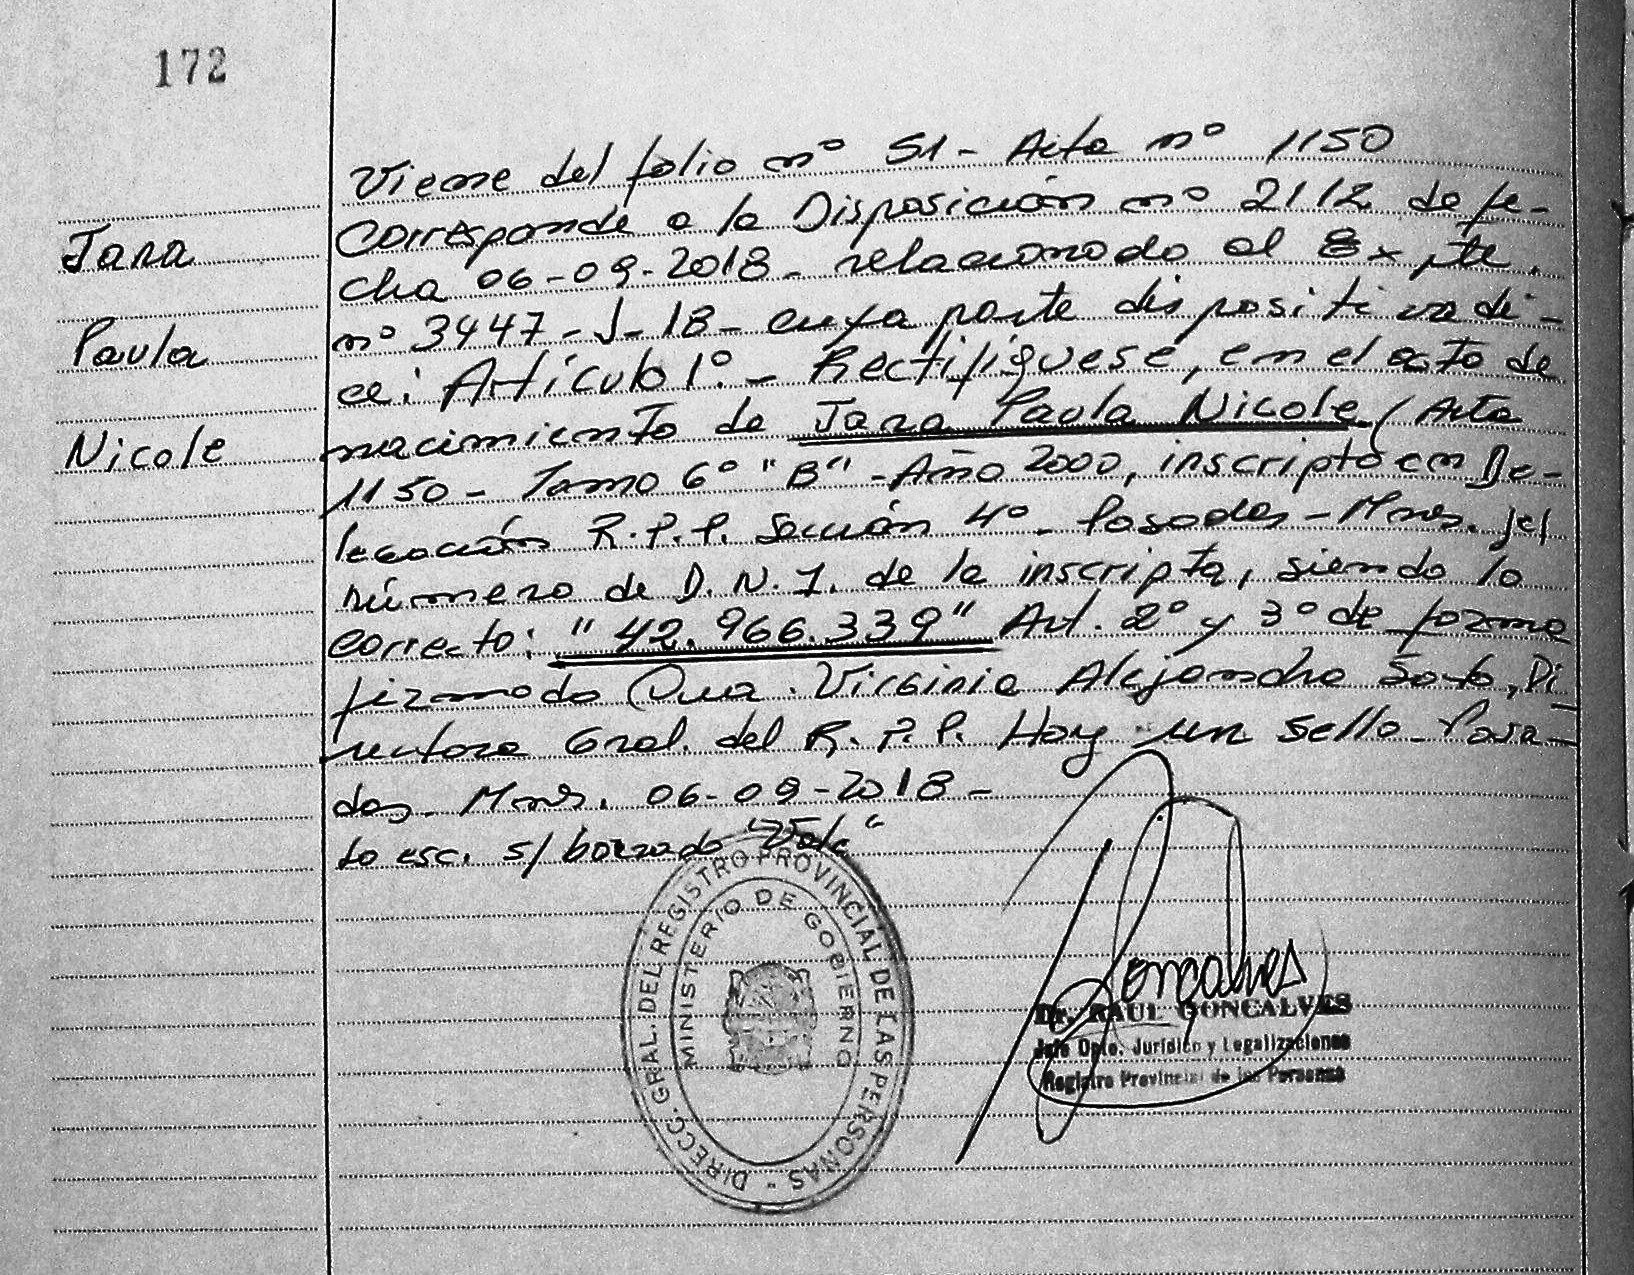 172
Jara
Paula
Nicole
Viene del folio nº 51 - Acta nº 1150
Corresponde a la Disposición nº 2112 de fe-
cha 06-09-2018 - relacionado al Expte.
nº 3447-J-18 - cuya parte dispositiva di-
ce: Artículo 1º. - Rectifíquese, en el acto de
nacimiento de Jara Paula Nicole (Acta
1150 - Tomo 6º "B" - Año 2000, inscripto en De-
legación R.P.P. Sección 4º - Posadas - Mnes. ) el
número de D.N.I. de la inscripta, siendo lo
correcto: "42.966.339" Art. 2º y 3º de forma
firmado Virginia Alejandra Soto, Di
rectora Gral. del R.P.P. Hay un sello - Posa-
das - Mnes. 06-09-2018 -
lo esc. s/ borrado "Vale"
DIRECC. GRAL. DEL REGISTRO PROVINCIAL DE LAS PERSONAS -
MINISTERIO DE GOBIERNO
Goncalves
Dr. RAUL GONCALVES
Jefe Dpto. Jurídico y Legalizaciones
Registro Provincial de las Personas